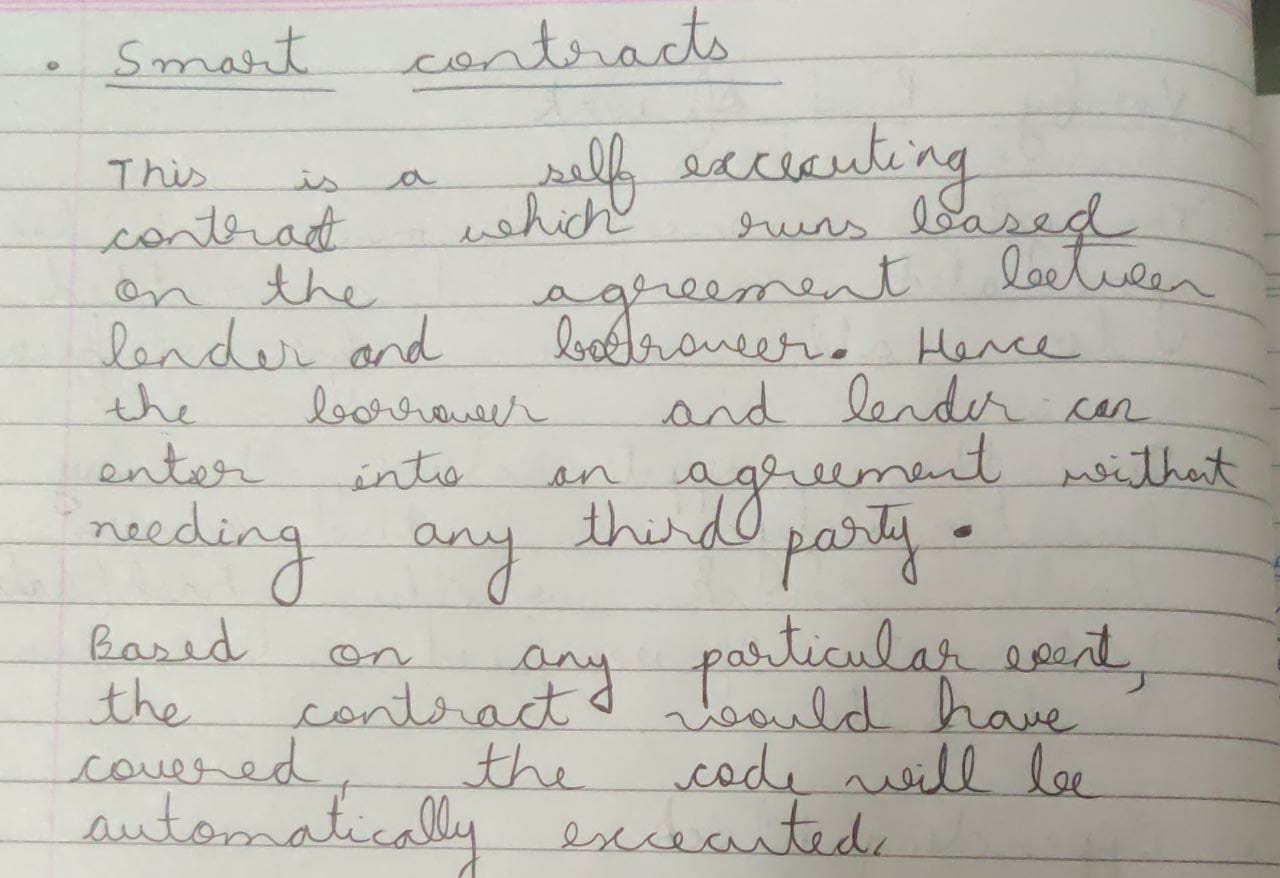 • Smart contracts
This is a self excecuting
contract which runs based
on the agreement between
lender and borrower. Hence
the borrower and lender can
enter into an agreement without
needing any third party.
Based on any particular event,
the contract would have
covered, the code will be
automatically excecuted.